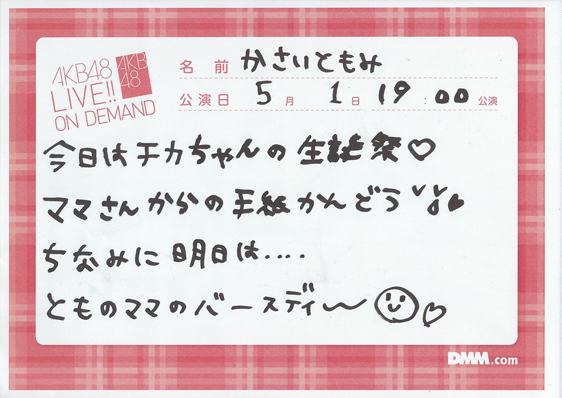 AKB48
LIVE!!
ON DEMAND
AKB
48
名前 かさいともみ
公演日 5月 1日 19:00公演
今日はチカちゃんの生誕祭♡
ママさんからの手紙かんどう
ちなみに明日は....
とものママのバースディ〜
DMM.com